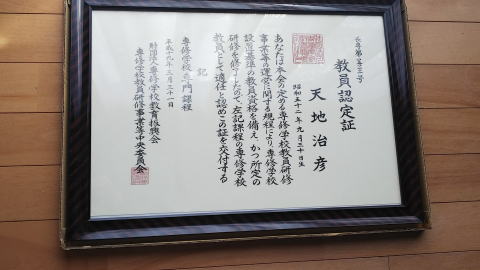 教員認定証
天地治彦
昭和五十二年九月三十日生
あなたは本会の定める専修学校教員研修
事業等の運営に関する規程により、専修学校
設置基準の教員資格を備え、かつ所定の
研修を修了したので、左記課程の専修学校
教員として適任と認めこの証を交付する
記
専修学校専門課程
平成十九年三月三十一日
財団法人専修学校教育振興会
専修学校教員研修事業等中央委員会